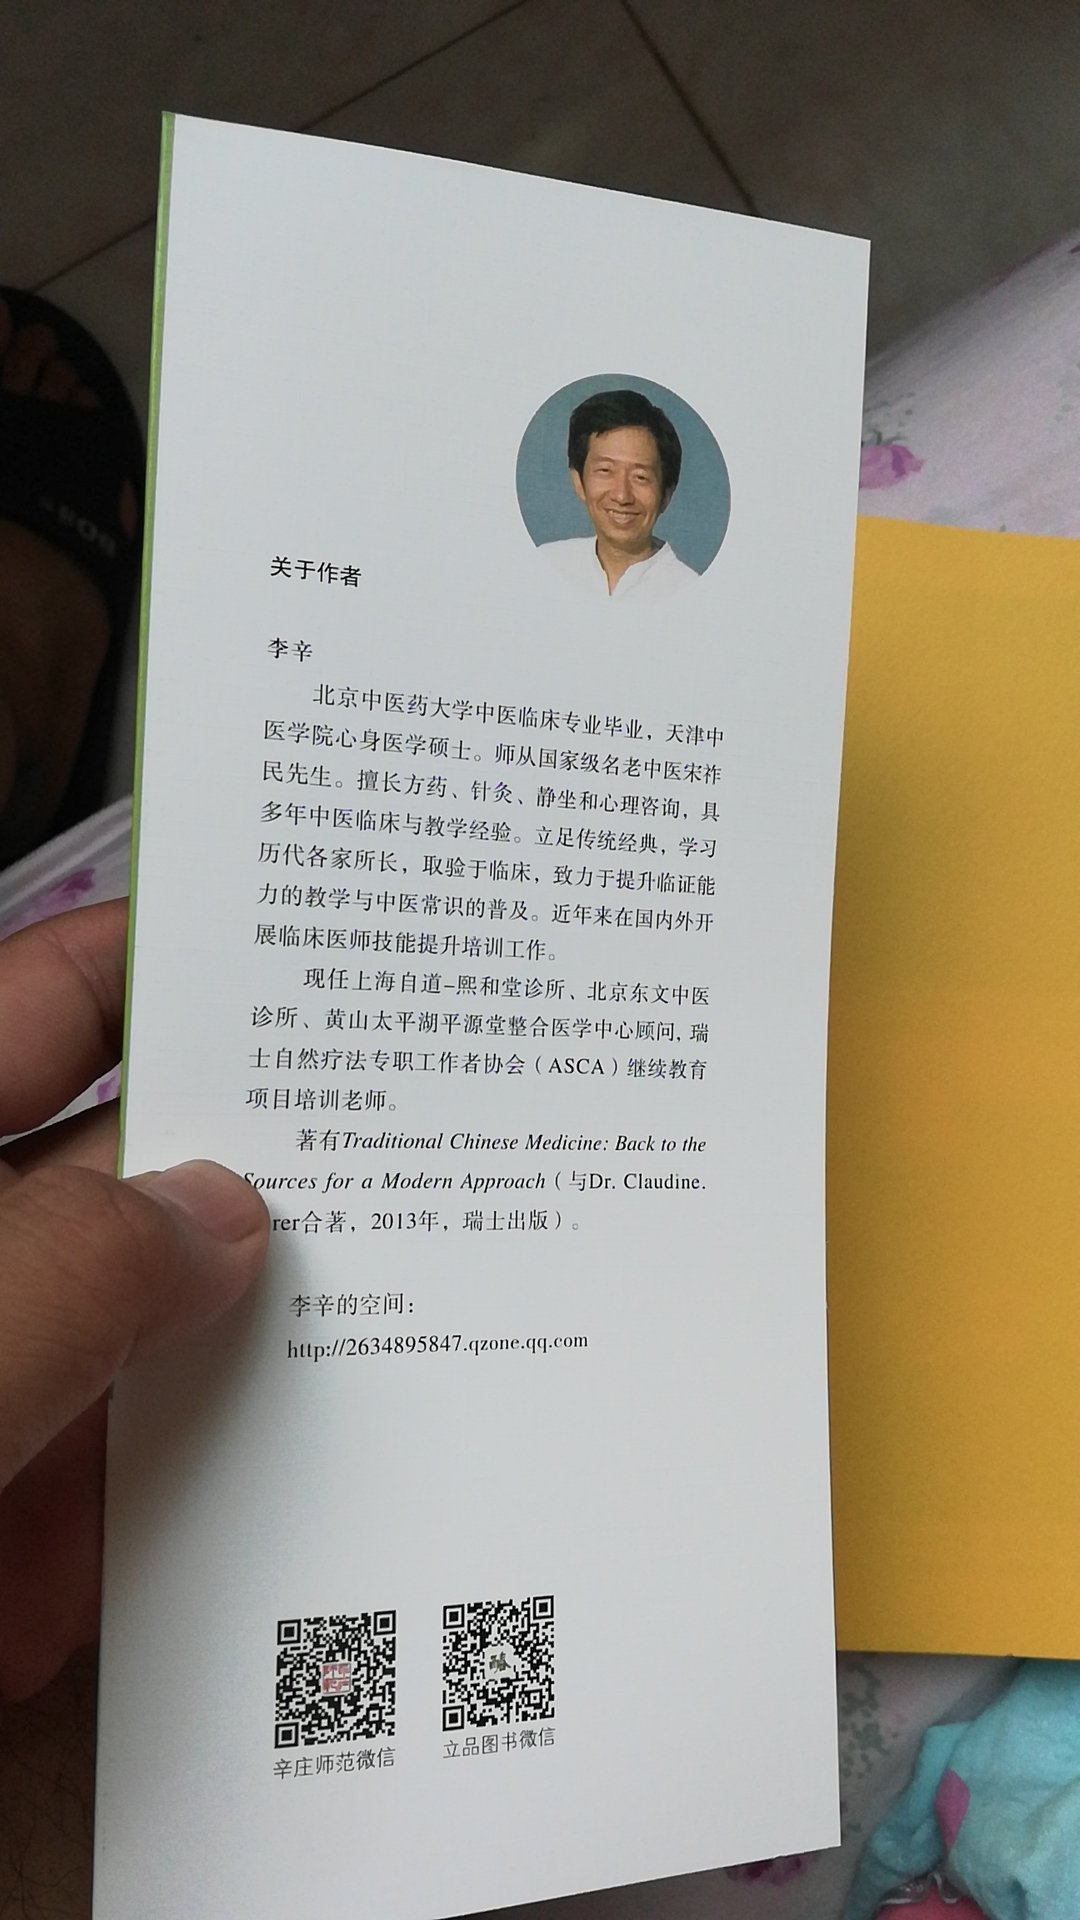 关于作者
李辛
北京中医药大学中医临床专业毕业，天津中
医学院心身医学硕士。师从国家级名老中医宋祚
民先生。擅长方药、针灸、静坐和心理咨询，具
多年中医临床与教学经验。立足传统经典，学习
历代各家所长，取验于临床，致力于提升临证能
力的教学与中医常识的普及。近年来在国内外开
展临床医师技能提升培训工作。
现任上海自道-熙和堂诊所、北京东文中医
诊所、黄山太平湖平源堂整合医学中心顾问, 瑞
士自然疗法专职工作者协会（ASCA）继续教育
项目培训老师。
著有Traditional Chinese Medicine: Back to the
Sources for a Modern Approach（与Dr. Claudine.
合著，2013年，瑞士出版）。
李辛的空间：
http://2634895847.qzone.qq.com
辛庄师范微信
立品图书微信